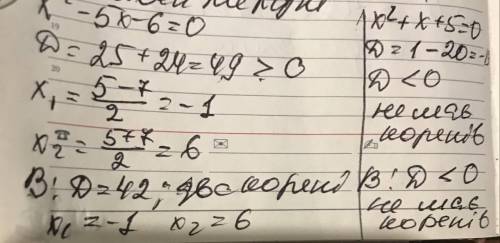 x² - 5x - 6 = 0
D = 25 + 24 = 49 > 0
x₁ = (5-7)/2 = -1
x₂ = (5+7)/2 = 6
В! D = 42; два корені
x₁ = -1 x₂ = 6
x² + x + 5 = 0
D = 1 - 20 =
D < 0
не має
коренів
В! D < 0
не має
коренів